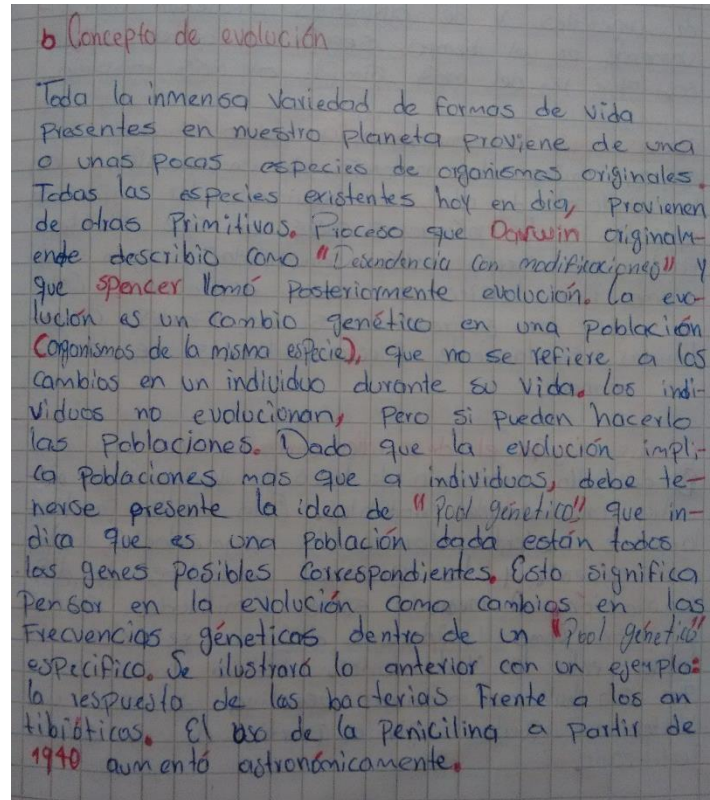 b Concepto de evolución
Toda la inmensa variedad de formas de vida
presentes en nuestro planeta proviene de una
o unas pocas especies de organismos originales.
Todas las especies existentes hoy en dia, provienen
de otras Primitivas. Proceso que Darwin originalm-
ende describio como "Desendencia con modificaciones" y
que spencer llamó posteriormente evolución. la evo-
lución es un cambio genético en una población
(organismos de la misma especie), que no se refiere a los
cambios en un individuo durante su vida. los indi-
viduos no evolucionan, Pero si pueden hacerlo
las Poblaciones. Dado que la evolución impli-
ca poblaciones mas que a individuos, debe te-
nerse presente la idea de "Pool génetico" que in-
dica que es una Población dada están todos
los genes posibles correspondientes. Esto significa
Pensar en la evolución como cambios en las
Frecuencias géneticas dentro de un "Pool génetico"
especifico. Se ilustrará lo anterior con un ejemplo:
la respuesta de las bacterias Frente a los an
tibióticos. El uso de la Penicilina a partir de
1940 aumentó astronómicamente.